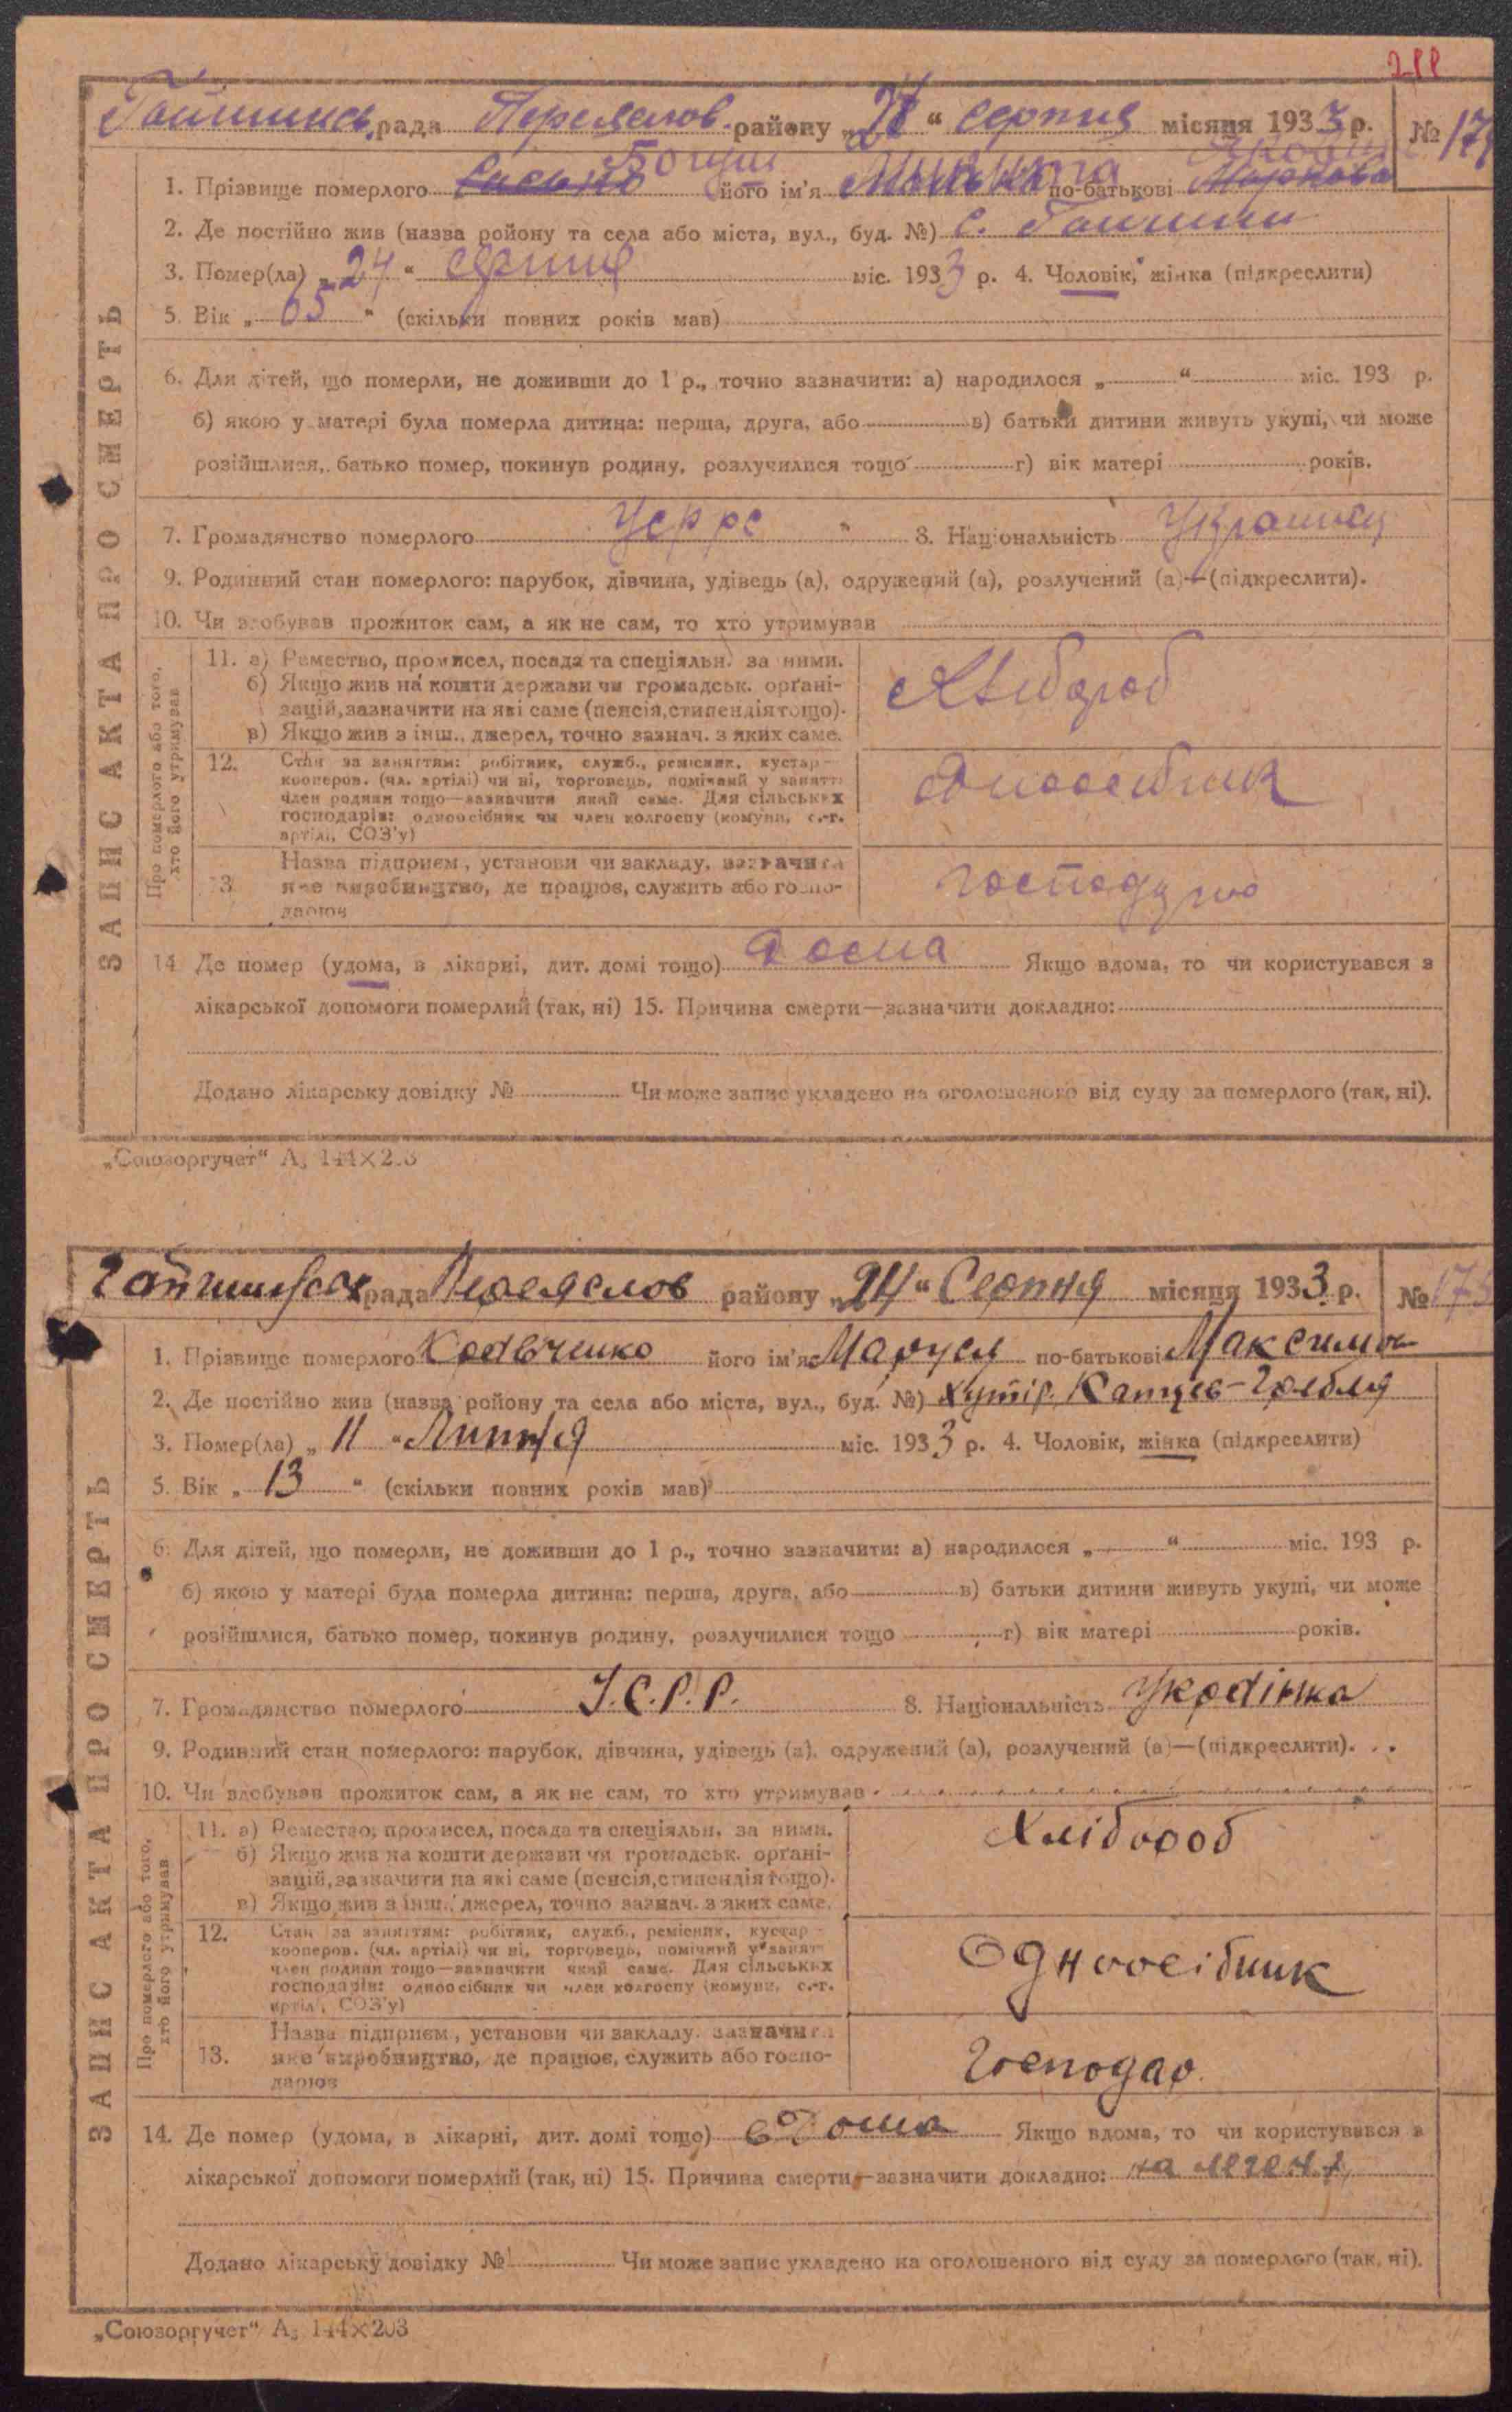 211
Гайшинсь. рада Переяслов. району „24“ серпня місяця 1933 р. №
1. Прізвище померлого Богуш його ім'я Микита по-батькові
2. Де постійно жив (назва ройону та села або міста, вул., буд. №) с. Гайшин
3. Помер(ла) „24“ серпня міс. 1933 р. 4. Чоловік, жінка (підкреслити)
5. Вік „65“ (скільки повних років мав)
6. Для дітей, що померли, не доживши до 1 р., точно зазначити: а) народилося „ “ міс. 193 р.
б) якою у матері була померла дитина: перша, друга, або в) батьки дитини живуть укупі, чи може
розійшлися, батько помер, покинув родину, розлучилися тощо г) вік матері років.
7. Громадянство померлого Усррс 8. Національність Украинец
9. Родинний стан померлого: парубок, дівчина, удівець (а), одружений (а), розлучений (а)—(підкреслити).
10. Чи здобував прожиток сам, а як не сам, то хто утримував
ЗАПИС АКТА ПРО СМЕРТЬ
Про померлого або того, хто його утримував
11. а) Ремество, промисел, посада та спеціяльн. за ними.
б) Якщо жив на кошти держави чи громадськ. орґані-
зацій, зазначити на які саме (пенсія, стипендія тощо).
в) Якщо жив з інш., джерел, точно зазнач. з яких саме.
Хлібороб
12. Стан за заняттям: робітник, служб., ремісник, кустар-
кооперов. (чл. артілі) чи ні, торговець, помічний у занятті
член родини тощо—зазначити який саме. Для сільських
господарів: одноосібник чи член колгоспу (комуни, с.-г.
артілі, СОЗ'у)
Одноосібник
13. Назва підприєм., установи чи закладу, зазначити
яке виробництво, де працює, служить або госпо-
дарює
господарю
14. Де помер (удома, в лікарні, дит. домі тощо) Дома Якщо вдома, то чи користувався з
лікарської допомоги померлий (так, ні) 15. Причина смерти—зазначити докладно:
Додано лікарську довідку № Чи може запис укладено на оголошеного від суду за померлого (так, ні).
„Союзоргучет“ А₅ 144×203
Гайшинськ рада Переяслов району „24“ Серпня місяця 1933 р. № 175
1. Прізвище померлого Кравченко його ім'я Маруся по-батькові Максимов
2. Де постійно жив (назва ройону та села або міста, вул., буд. №) хутір. Канцев-Гребля
3. Помер(ла) „11“ Липня міс. 1933 р. 4. Чоловік, жінка (підкреслити)
5. Вік „13“ (скільки повних років мав)
6. Для дітей, що померли, не доживши до 1 р., точно зазначити: а) народилося „ “ міс. 193 р.
б) якою у матері була померла дитина: перша, друга, або в) батьки дитини живуть укупі, чи може
розійшлися, батько помер, покинув родину, розлучилися тощо г) вік матері років.
7. Громадянство померлого У.С.Р.Р. 8. Національність Українка
9. Родинний стан померлого: парубок, дівчина, удівець (а), одружений (а), розлучений (а)—(підкреслити).
10. Чи здобував прожиток сам, а як не сам, то хто утримував
ЗАПИС АКТА ПРО СМЕРТЬ
Про померлого або того, хто його утримував
11. а) Ремество, промисел, посада та спеціяльн. за ними.
б) Якщо жив на кошти держави чи громадськ. орґані-
зацій, зазначити на які саме (пенсія, стипендія тощо).
в) Якщо жив з інш., джерел, точно зазнач. з яких саме.
Хлібороб
12. Стан за заняттям: робітник, служб., ремісник, кустар-
кооперов. (чл. артілі) чи ні, торговець, помічний у занят
член родини тощо—зазначити який саме. Для сільських
господарів: одноосібник чи член колгоспу (комуни, с.-г.
артілі, СОЗ'у)
Одноосібник
13. Назва підприєм., установи чи закладу, зазначити
яке виробництво, де працює, служить або госпо-
дарює
Господар.
14. Де помер (удома, в лікарні, дит. домі тощо) в Дома Якщо вдома, то чи користувався з
лікарської допомоги померлий (так, ні) 15. Причина смерти—зазначити докладно: на легені
Додано лікарську довідку № Чи може запис укладено на оголошеного від суду за померлого (так, ні).
„Союзоргучет“ А₅ 144×203